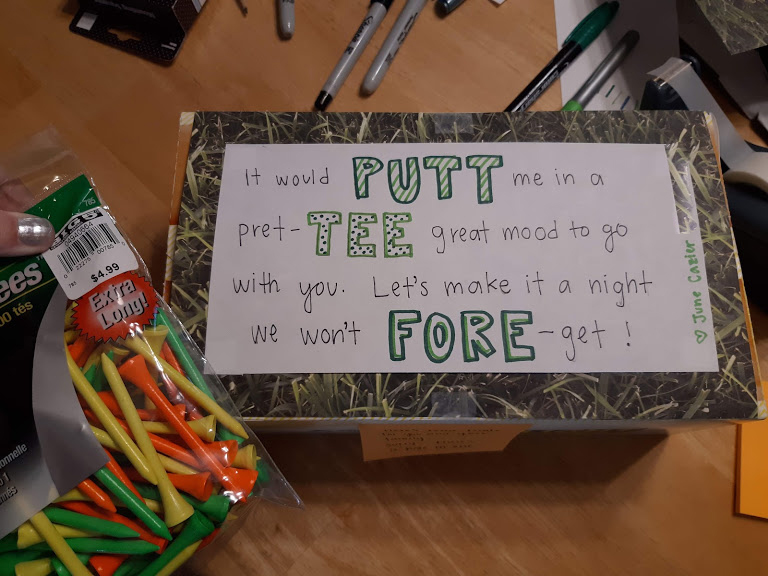 It would PUTT me in a
pret-TEE great mood to go
with you. Let's make it a night
we won't FORE-get!
♡ June Cazier
785
$4.99
Extra
Long!
ees
00 tés
785